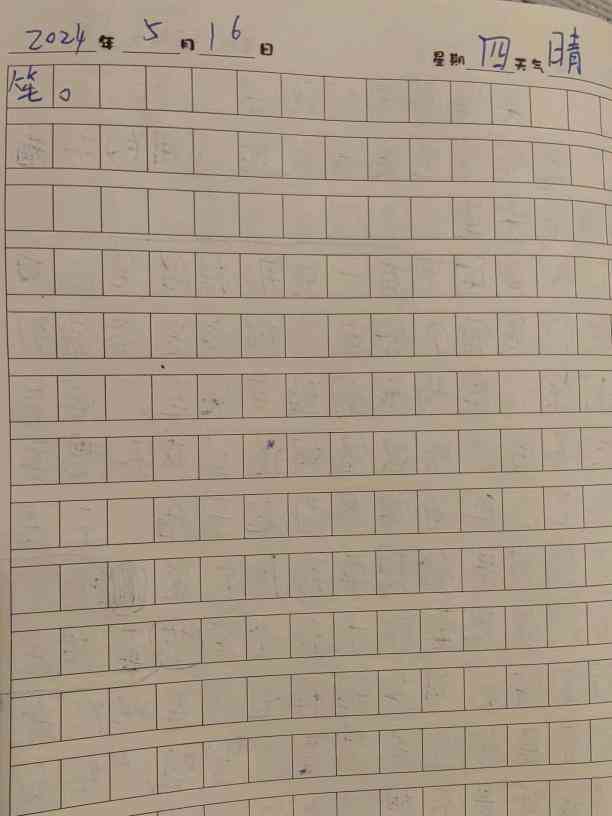 2024年5月16日 星期四天气晴
笔。